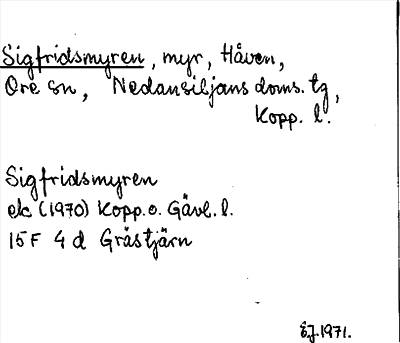 Sigfridsmyren, myr, Håven,
Ore sn, Nedansiljans doms. tg,
Kopp. l.
Sigfridsmyren
ek (1970) Kopp. o. Gävl. l.
15 F 4 d Gråstjärn
EJ. 1971.